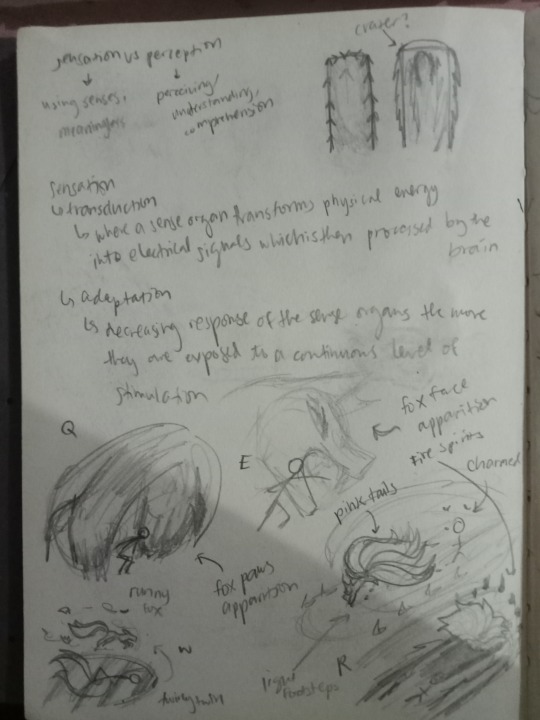 crazer?
sensation vs perception
using senses,
meaningless
perceiving/
understanding,
comprehension
sensation
↳ transduction
↳ where a sense organ transforms physical energy
into electrical signals which is then processed by the
brain
↳ adaptation
↳ decreasing response of the sense organs the more
they are exposed to a continuous level of
stimulation
Q
E
fox face
apparition
fire spirits
charmed
pink tails
fox paws
apparition
runny
fox
W
R
light
footsteps